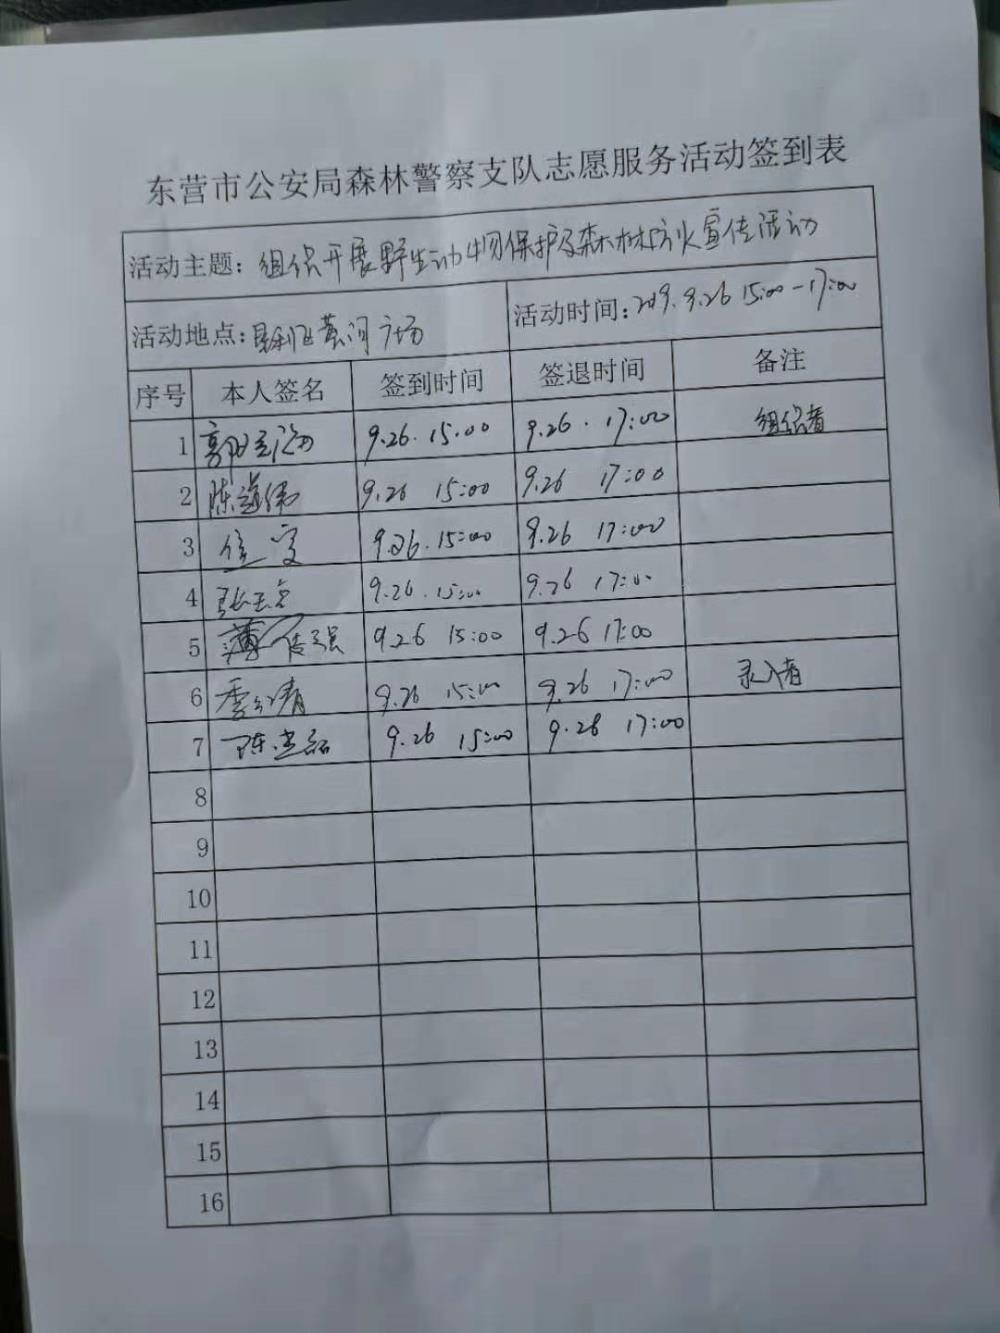 东营市公安局森林警察支队志愿服务活动签到表
活动主题：组织开展野生动物保护及森林防火宣传活动
活动地点：垦利区黄河广场 活动时间：2019.9.26 15:00-17:00
序号 本人签名 签到时间 签退时间 备注
1 9.26. 15.00 9.26. 17:00 组织者
2 陈道伟 9.26 15:00 9.26 17:00
3 9.26. 15:00 9.26 17:00
4 9.26. 15:00 9.26 17:00
5 薄传强 9.26 15:00 9.26 17:00
6 9.26 15:00 9.26 17:00 录入者
7 9.26 15:00 9.26 17:00
8
9
10
11
12
13
14
15
16